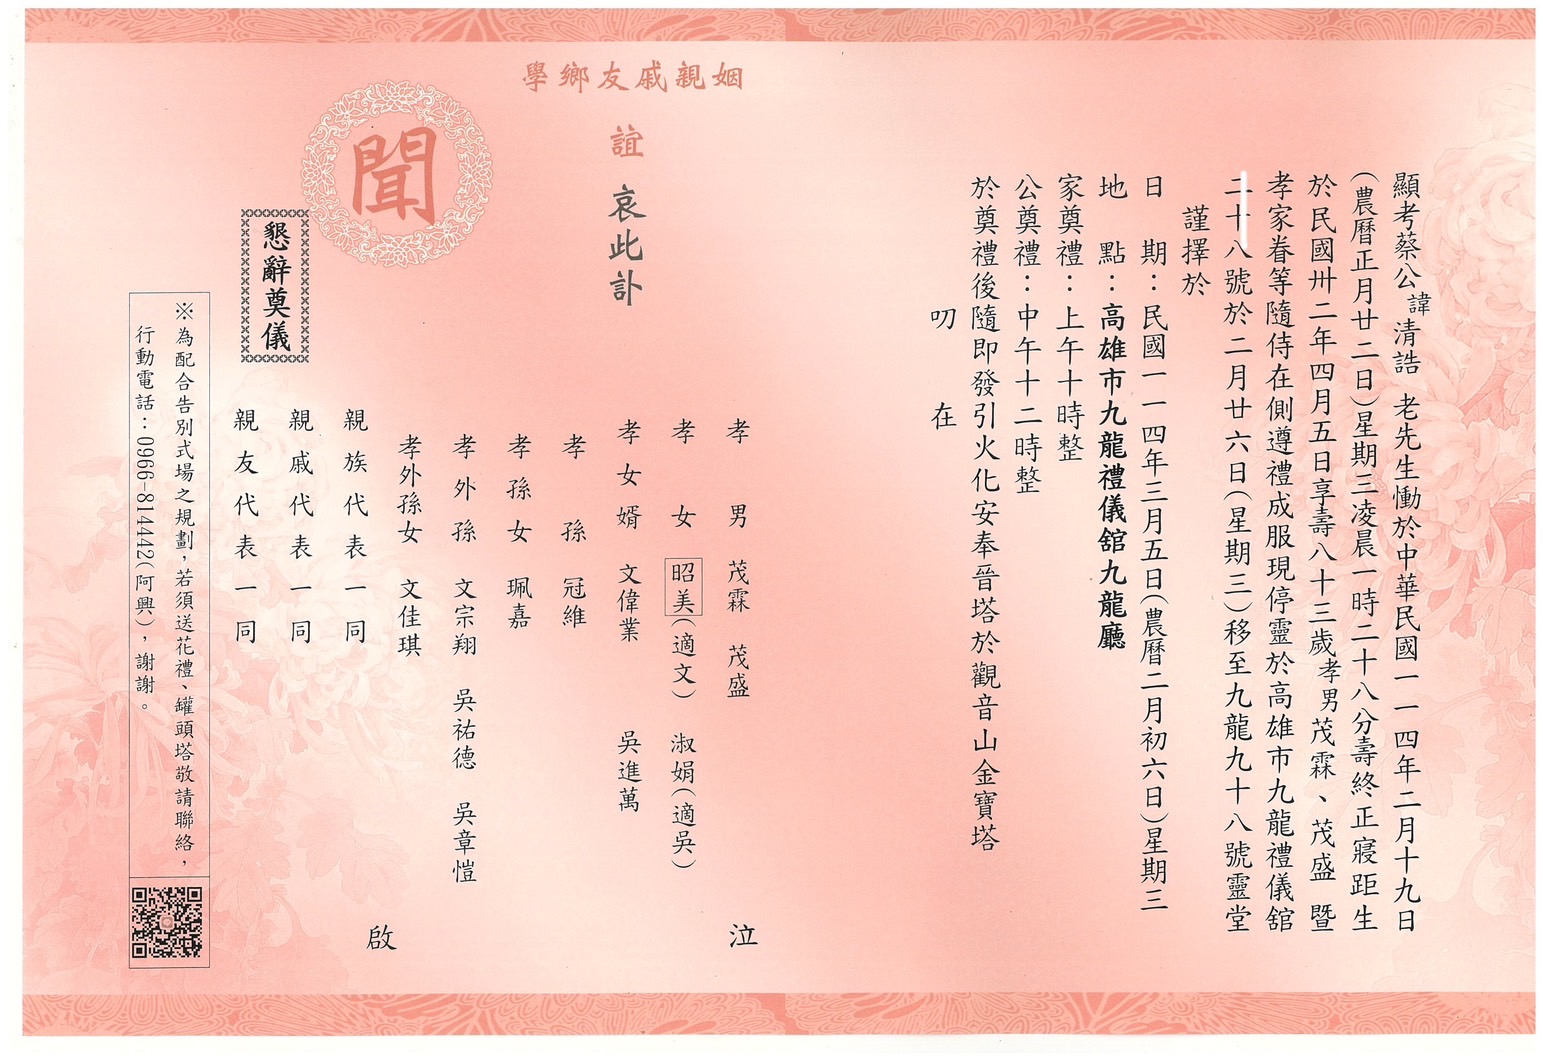 顯考蔡公諱清誥 老先生慟於中華民國一一四年二月十九日
(農曆正月廿二日)星期三凌晨一時二十八分壽終正寢距生
於民國卅二年四月五日享壽八十三歲孝男茂霖、茂盛 暨
孝家眷等隨侍在側遵禮成服現停靈於高雄市九龍禮儀舘
二十八號於二月廿六日(星期三)移至九龍九十八號靈堂
謹擇於
日 期：民國一一四年三月五日(農曆二月初六日)星期三
地 點：高雄市九龍禮儀舘九龍廳
家奠禮：上午十時整
公奠禮：中午十二時整
於奠禮後隨即發引火化安奉晉塔於觀音山金寶塔
叨 在
姻親戚友鄉學
誼 哀此訃
聞
孝男 茂霖 茂盛
孝女 昭美(適文) 淑娟(適吳)
孝女婿 文偉業 吳進萬
孝孫 冠維
孝孫女 珮嘉
孝外孫 文宗翔 吳祐德 吳章愷
孝外孫女 文佳琪
泣
親族代表一同
親戚代表一同
親友代表一同
啟
懇辭奠儀
※為配合告別式場之規劃，若須送花禮、罐頭塔敬請聯絡，
行動電話：0966-814442(阿興)，謝謝。